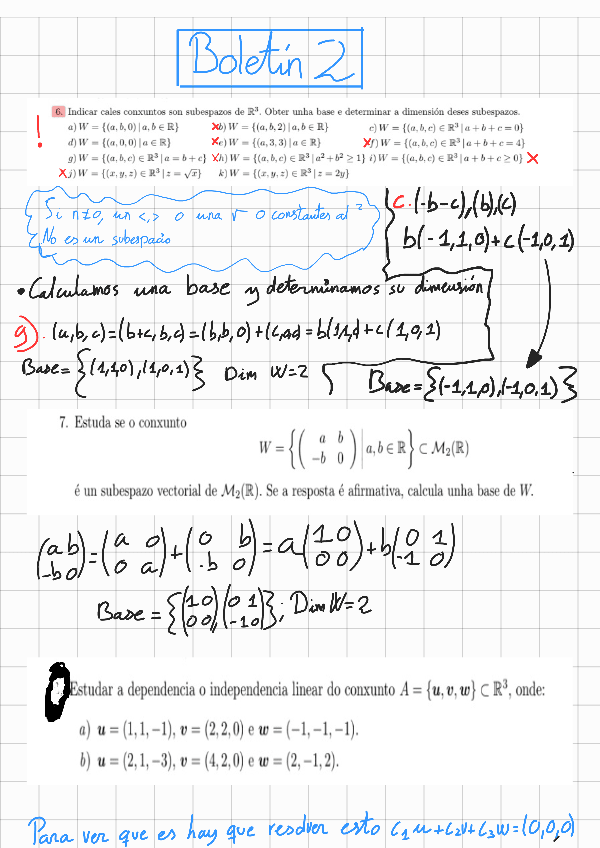 Boletín 2
6. Indicar cales conxuntos son subespazos de ℝ³. Obter unha base e determinar a dimensión deses subespazos.
! a) W = {(a, b, 0) | a, b ∈ ℝ} X b) W = {(a, b, 2) | a, b ∈ ℝ} c) W = {(a, b, c) ∈ ℝ³ | a + b + c = 0}
d) W = {(a, 0, 0) | a ∈ ℝ} X e) W = {(a, 3, 3) | a ∈ ℝ} X f) W = {(a, b, c) ∈ ℝ³ | a + b + c = 4}
g) W = {(a, b, c) ∈ ℝ³ | a = b + c} X h) W = {(a, b, c) ∈ ℝ³ | a² + b² ≥ 1} i) W = {(a, b, c) ∈ ℝ³ | a + b + c ≥ 0} X
X j) W = {(x, y, z) ∈ ℝ³ | z = √x} k) W = {(x, y, z) ∈ ℝ³ | z = 2y}
Si n≠0, un <,> o una √ o constantes al ²
No es un subespacio
c. (-b-c),(b),(c)
b(-1,1,0)+c(-1,0,1)
• Calculamos una base y determinamos su dimensión
g). (a,b,c)=(b+c,b,c)=(b,b,0)+(c,0,c)=b(1,1,0)+c(1,0,1)
Base={(1,1,0),(1,0,1)} Dim W=2
Base={(-1,1,0),(-1,0,1)}
7. Estuda se o conxunto
W = {( a b
-b 0 ) | a, b ∈ ℝ} ⊂ M₂(ℝ)
é un subespazo vectorial de M₂(ℝ). Se a resposta é afirmativa, calcula unha base de W.
(a b) = (a 0) + (0 b) = a(1 0) + b(0 1)
(-b 0) (0 a) (-b 0) (0 0) (-1 0)
Base = {(1 0) (0 1)}; Dim W=2
(0 0), (-1 0)
Estudar a dependencia o independencia linear do conxunto A = {u, v, w} ⊂ ℝ³, onde:
a) u = (1, 1, −1), v = (2, 2, 0) e w = (−1, −1, −1).
b) u = (2, 1, −3), v = (4, 2, 0) e w = (2, −1, 2).
Para ver que es hay que resolver esto c₁u+c₂v+c₃w=(0,0,0)